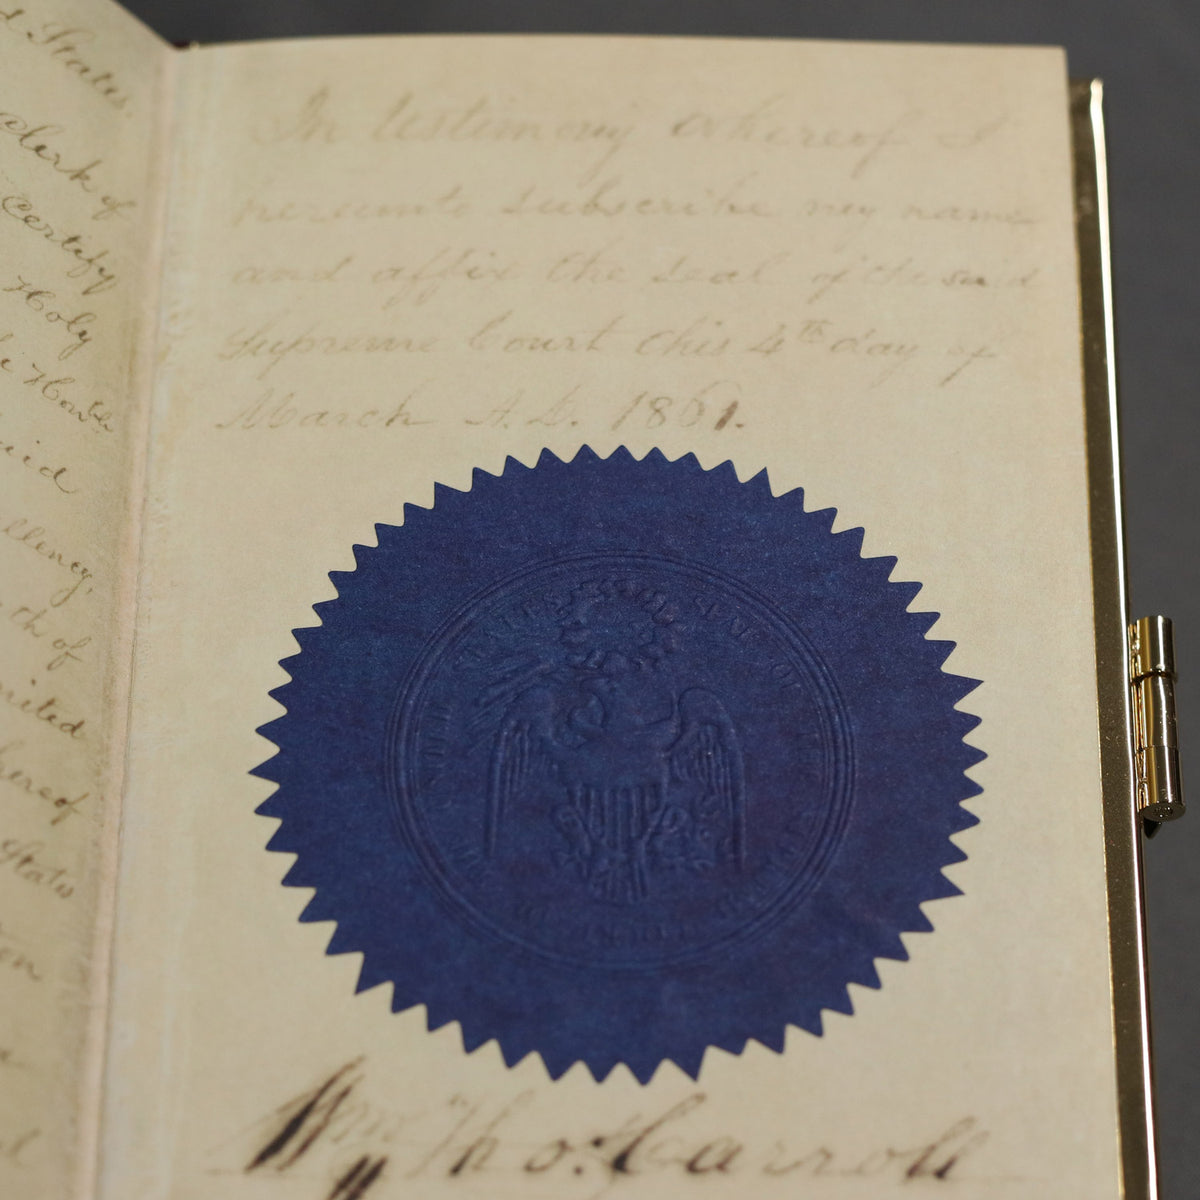 d States.
Clerk of
Certify
Holy
Honble
said
llency,
th of
nited
hereof
States
In testimony whereof I
hereunto subscribe my name
and affix the seal of the said
Supreme Court this 4th day of
March A.D. 1861.
STATES SEAL OF
Wm Tho. Carroll